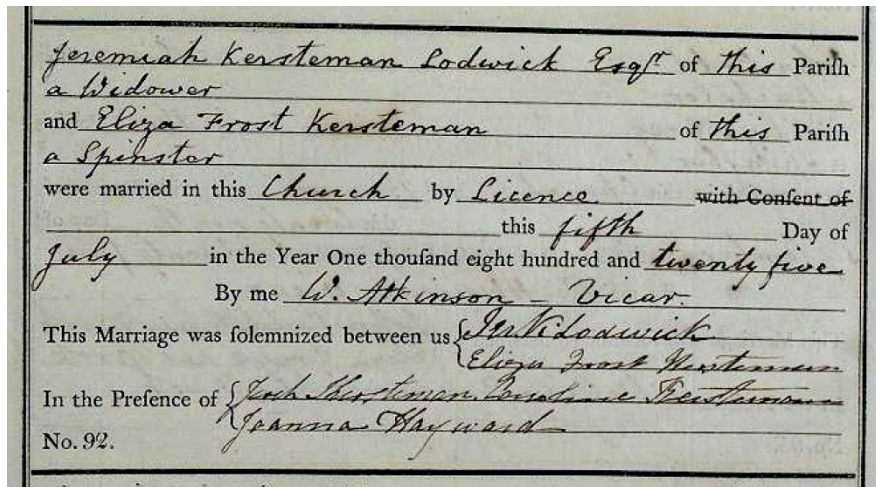 Jeremiah Kersteman Lodwick Esqr. of this Pariſh
a Widower
and Eliza Frost Kersteman of this Pariſh
a Spinster
were married in this Church by Licence with Conſent of
this fifth Day of
July in the Year One thouſand eight hundred and twenty five
By me W. Atkinson - Vicar.
This Marriage was ſolemnized between us { Jer K Lodwick
Eliza Frost Kersteman
In the Preſence of { Jerh Kersteman Caroline Kersteman
Joanna Hayward
No. 92.